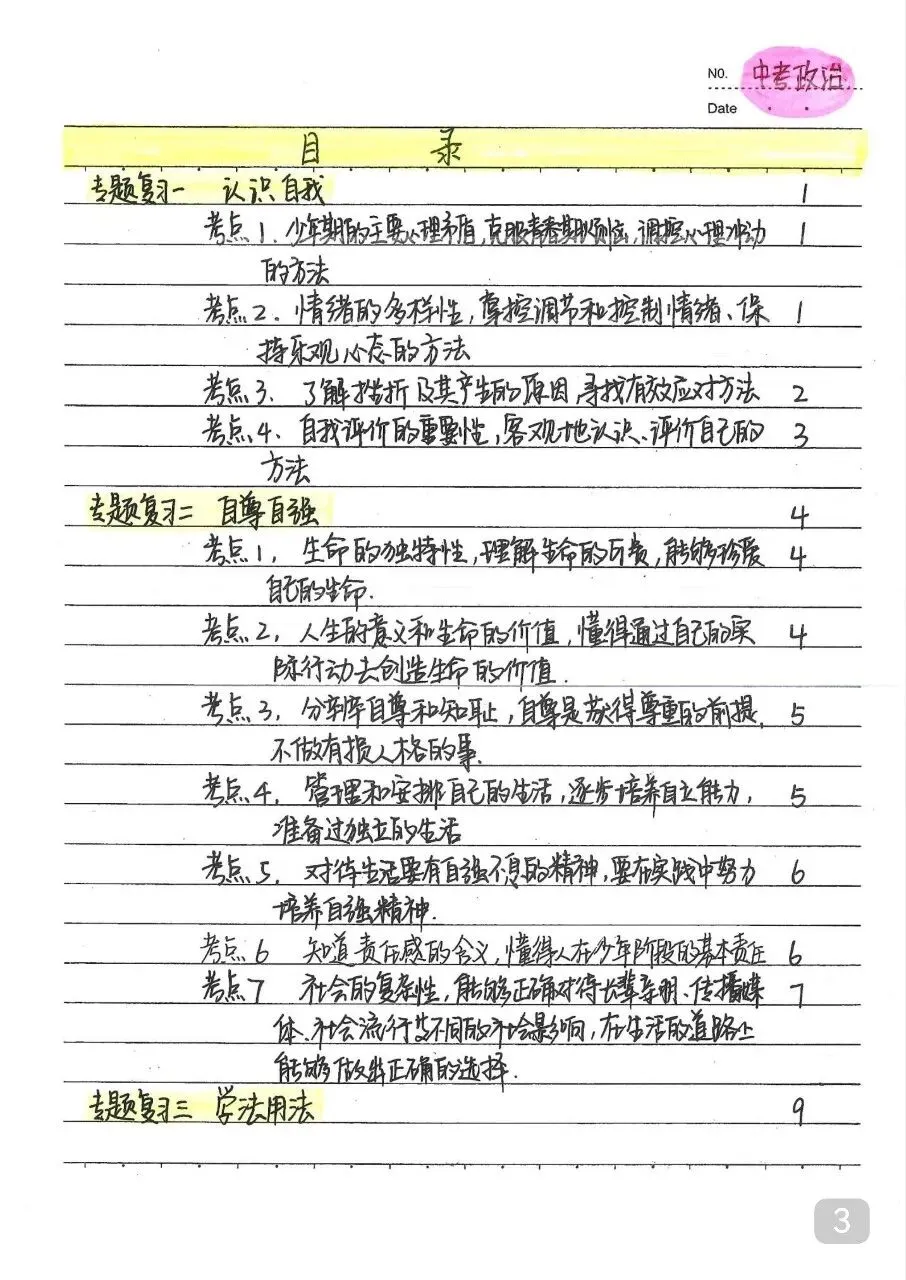 NO. 中考政治
Date
目 录
专题复习一 认识自我 1
考点1. 少年期的主要心理矛盾,克服青春期烦恼,调控心理冲动 1
的方法
考点2. 情绪的多样性,掌控调节和控制情绪、保 1
持乐观心态的方法
考点3. 了解挫折及其产生的原因 寻找有效应对方法 2
考点4. 自我评价的重要性,客观地认识、评价自己的 3
方法
专题复习二 自尊自强 4
考点1. 生命的独特性,理解生命的可贵,能够珍爱 4
自己的生命.
考点2. 人生的意义和生命的价值,懂得通过自己的实 4
际行动去创造生命的价值.
考点3. 自尊和知耻,自尊是获得尊重的前提, 5
不做有损人格的事.
考点4. 管理和安排自己的生活,逐步培养自立能力, 5
准备过独立的生活
考点5. 对待生活要有自强不息的精神,要在实践中努力 6
培养自强精神.
考点6 知道责任感的含义,懂得人在少年阶段的基本责任 6
考点7 社会的复杂性,能够正确对待长辈亲朋、传播媒 7
体、社会流行等不同的社会影响,在生活的道路上
能够做出正确的选择.
专题复习三 学法用法 9
3